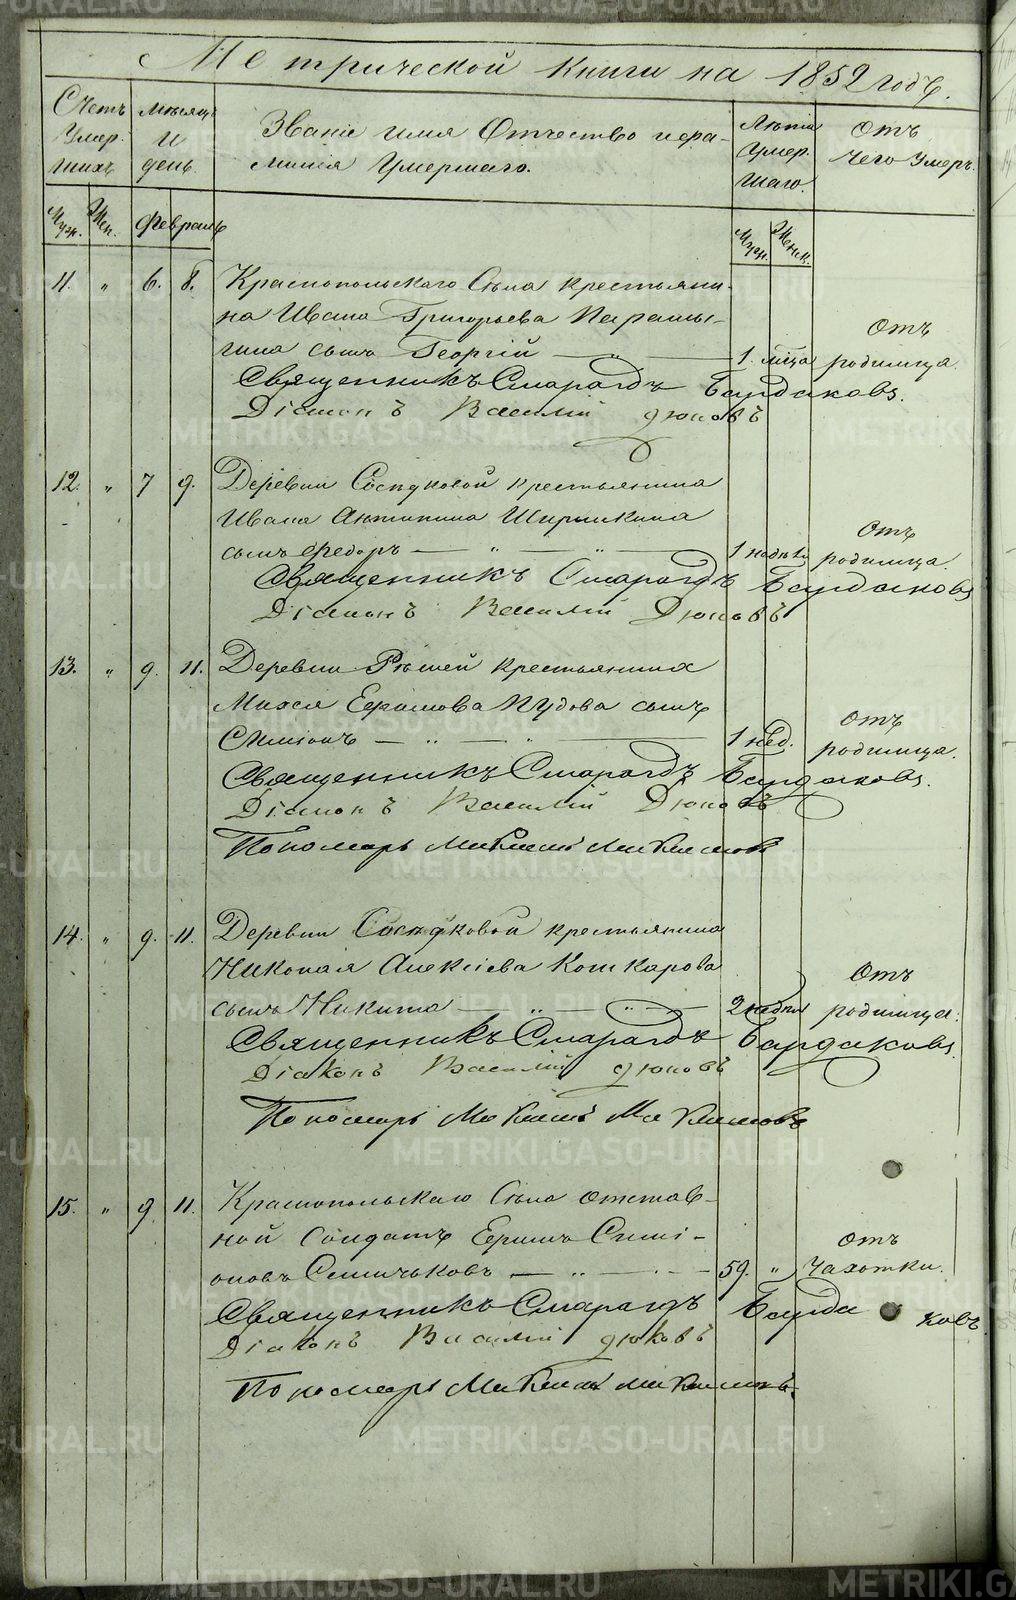 Метрической книги на 1852 годъ.
Счетъ Умер- шихъ
Мѣсяцъ и день.
Званіе имя Отчество и фа-
милія Умершаго.
Лѣта Умер- шаго.
Отъ чего Умеръ.
Муж. Жен. Февраль Муж. Женск.
11. " 6. 8. Краснопольскаго Села крестьяни-
на Ивана Григорьева
сынъ Георгій — " — 1. мѣсца
Отъ родимца.
Священникъ Смарагдъ Бардаковъ.
Діаконъ Василій Дюковъ
12. " 7 9. Деревни Сосѣдковой крестьянина
Ивана Антипина Ширинкина
сынъ Федоръ — " — " — 1 недѣли
Отъ родимца.
Священникъ Смарагдъ Бардаковъ
Діаконъ Василій Дюковъ
13. " 9. 11. Деревни Рѣшей крестьянина
Михея Ефимова Пудова сынъ
Симеонъ — " — " — 1 нед.
Отъ родимца.
Священникъ Смарагдъ Бардаковъ.
Діаконъ Василій Дюковъ
Пономарь
14. " 9. 11. Деревни Сосѣдковой крестьянина
Николая Алексіева Кошкарова
сынъ Никита — " — " — 2 недѣли
Отъ родимца.
Священникъ Смарагдъ Бардаковъ.
Діаконъ Василій Дюковъ
Пономарь
15. " 9 11. Краснопольскаго Села отстав-
ной Солдатъ Ермилъ Симі-
оновъ Симичьковъ — " — " — 59. "
Отъ Чахотки.
Священникъ Смарагдъ Бардаковъ.
Діаконъ Василій Дюковъ
Пономарь
METRIKI.GASO-URAL.RU